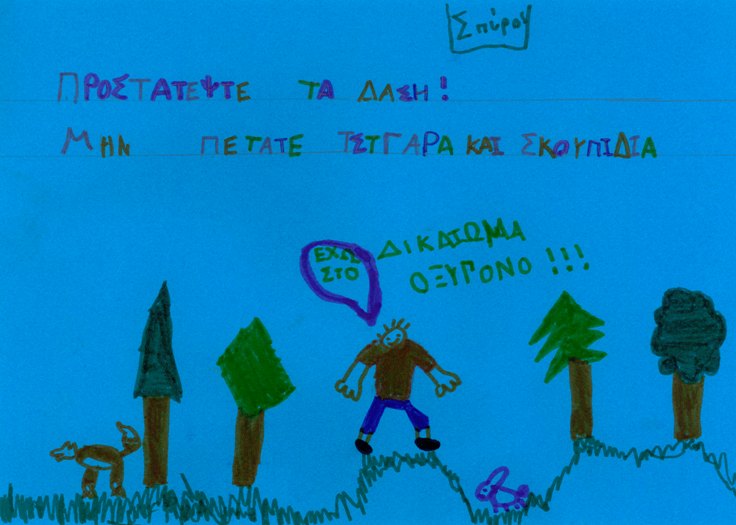 Σπύρου
ΠΡΟΣΤΑΤΕΨΤΕ ΤΑ ΔΑΣΗ!
ΜΗΝ ΠΕΤΑΤΕ ΤΣΙΓΑΡΑ ΚΑΙ ΣΚΟΥΠΙΔΙΑ
ΕΧΩ ΔΙΚΑΙΩΜΑ
ΣΤΟ ΟΞΥΓΟΝΟ !!!